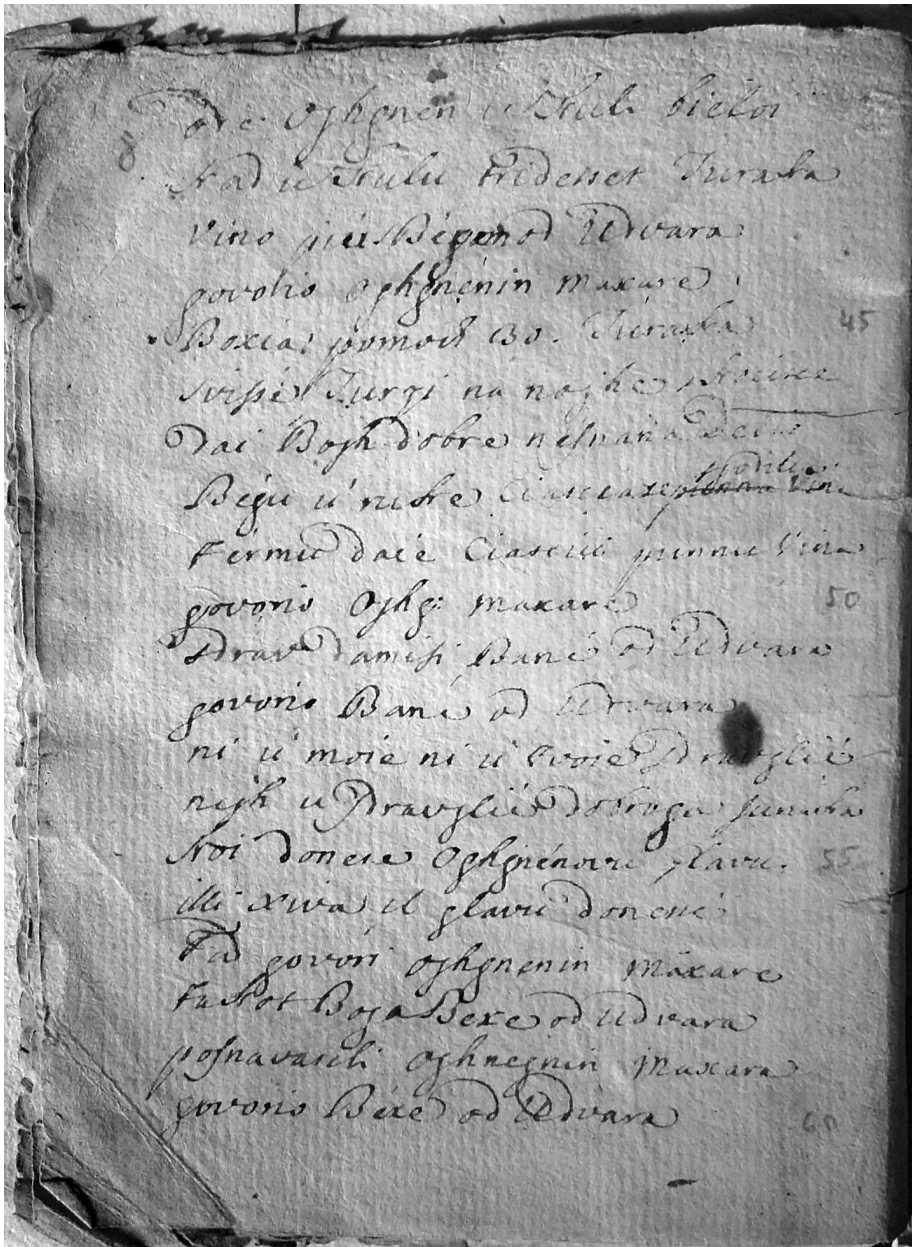 od c: Oghgnen u Kuli bieloi
8
Kad u Kulu tridesset Turaka
Vino piu s Begom od Udvara
govorio Oghgnenin Maxare
Boxia pomocs 30. Turaka
45
svissi Turçi na noghe skocisce
Dai Bogh dobre nesnana
Begu u ruke Ciascia se
Vina
Termu daie Ciasciu punnu Vina
govorio Oghg: Maxare
50
Sdrav da misi Bane od Udvara
govorio Bane od Udvara
ni u moie ni u tvoie Sdravglie
negh u Sdravglie dobroga junaka
Koi donese Oghgnenovu glavu
55
illi xiva il glavu donese
Tad govori Oghgnenin Maxare
Takot Boga Bexe od Udvara
posnavaseli Oghnegnin Maxara
govorio Bexe od Udvara
60